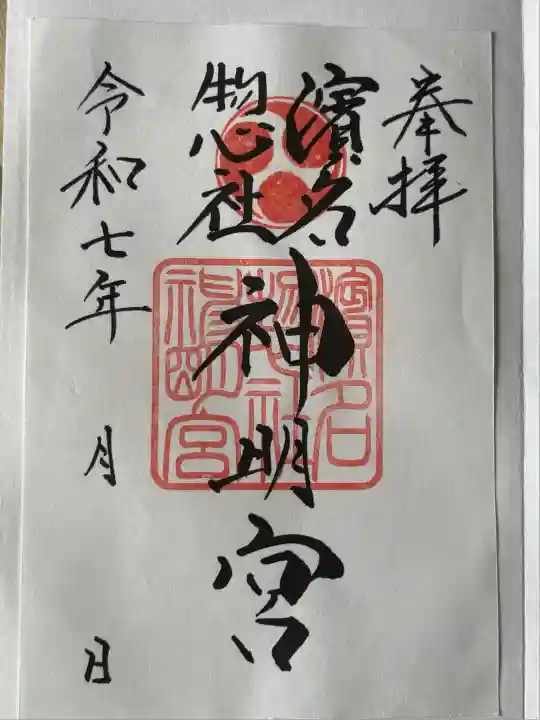 奉拝
濱名
惣社
神明宮
令和七年
月
日
濱名
惣社
神明宮